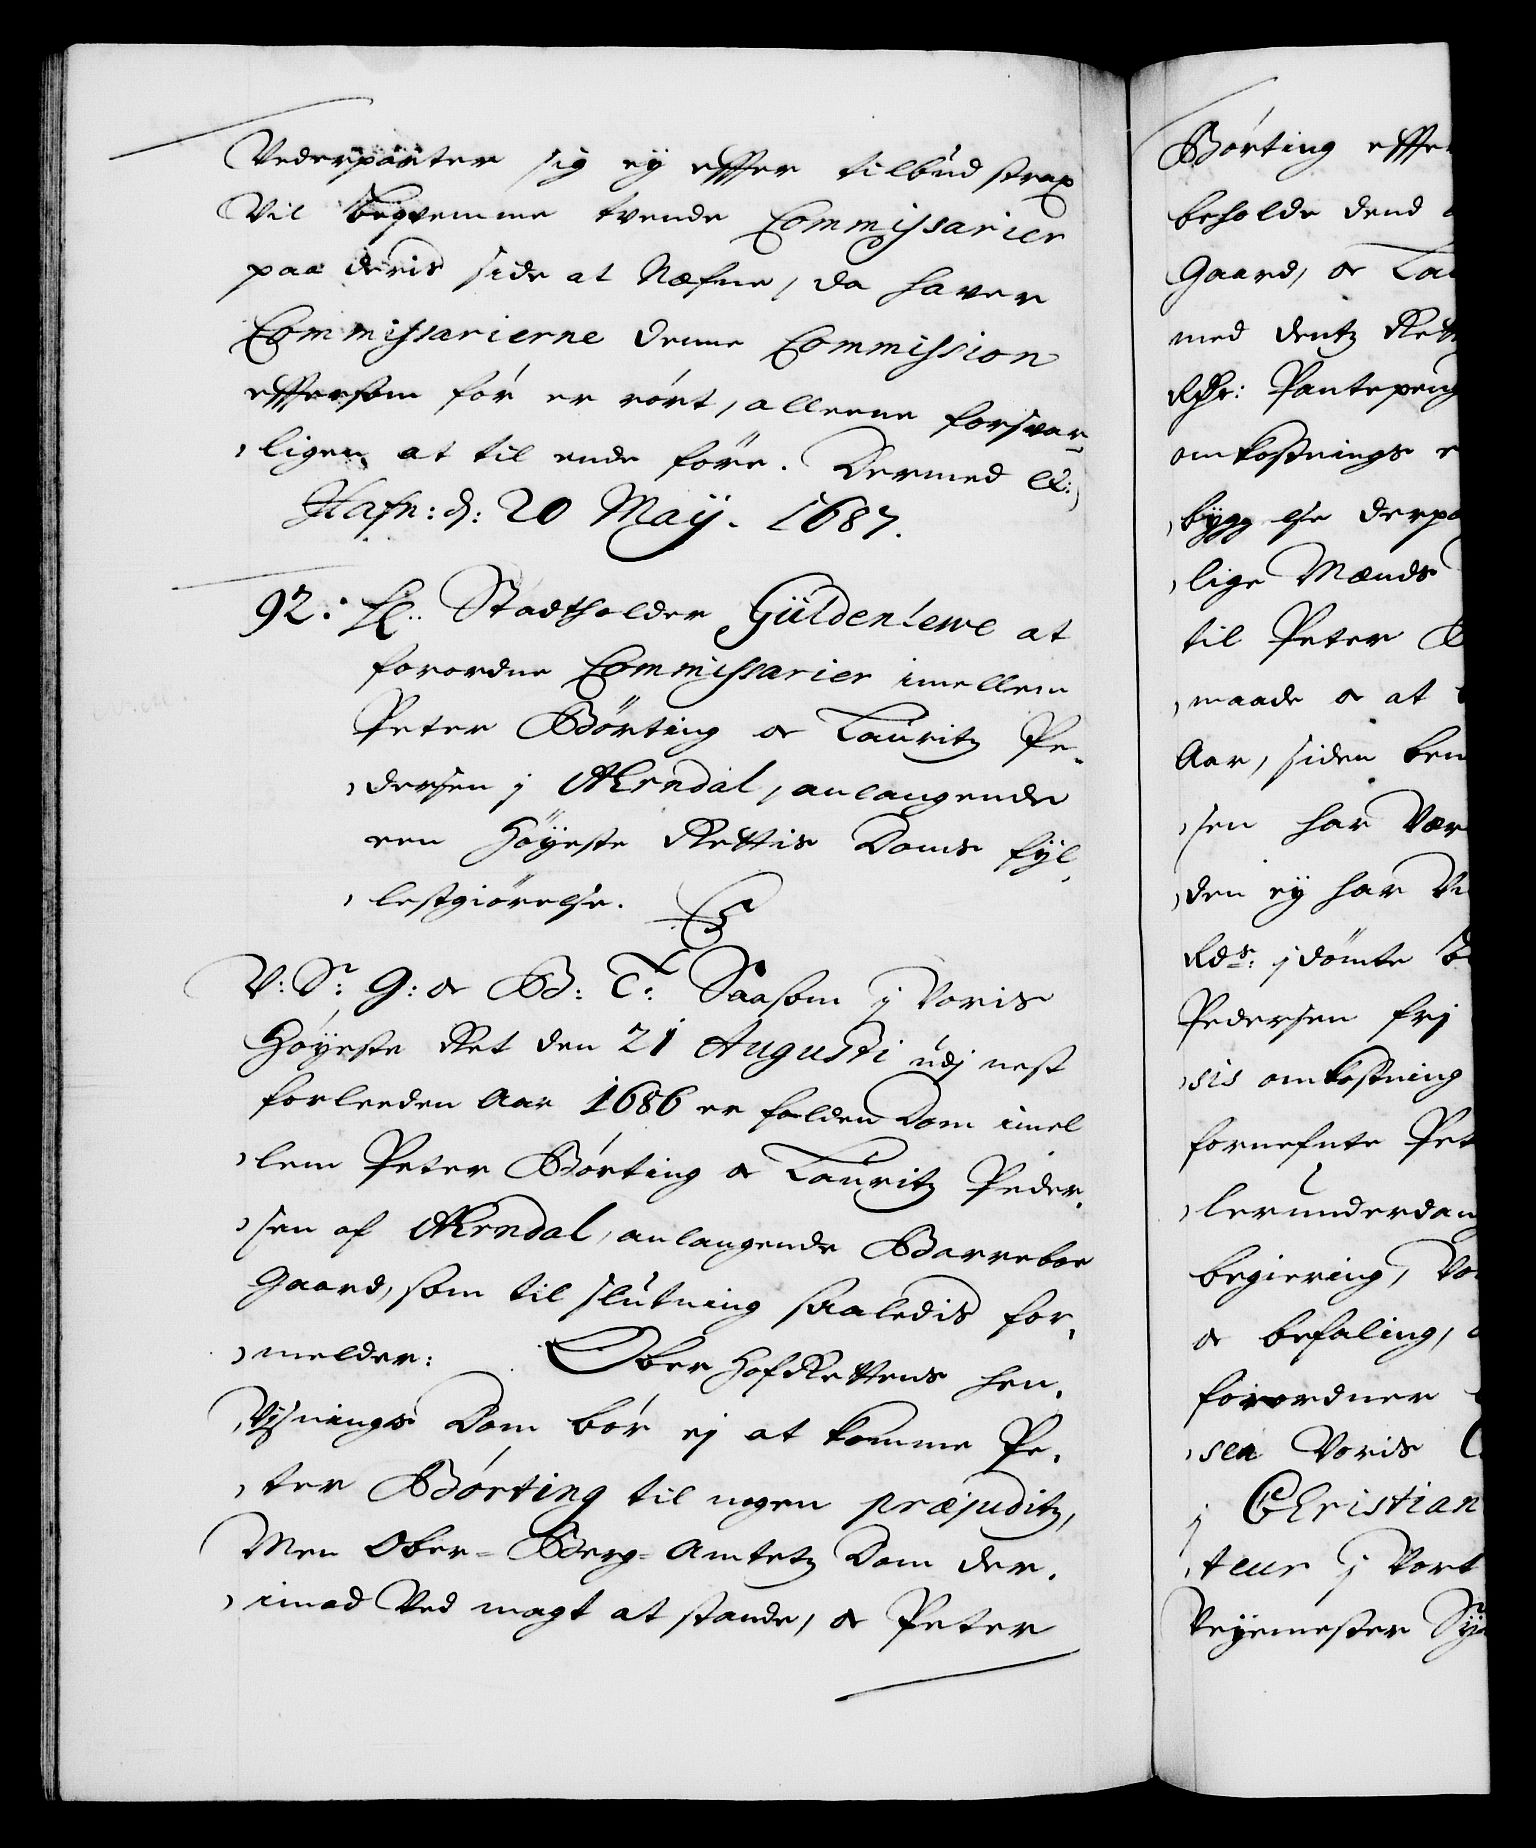 Vederparter sig ey effter tilbud strax
Vil beqvemme tvende Commissarier
paa deris side at Næfne, da haver
Commissarierne denne Commission
efftersom før er rørt, alleene forsvar
ligen at til ende føre. Dermed &c:
Hafn: d: 20 Maÿ. 1687.
92. H: Stadtholder Güldenlewe at
forordne Commissarier imellem
Peter Børting og Lauritz Pe
dersen j Arendal, anlangende
een Høÿeste Rettis Doms fÿl
lestgiørelse.
C5
V: S: G: og B: T: Saasom j Voris
Høÿeste Ret den 21 Augusti udj nest
forleeden Aar 1686 er falden Dom imel
lem Peter Børting og Lauritz Peder
sen af Arendal, anlangende Barreboe
Gaard, som til slutning saaledis for
melder: Ober HofRettens hen
Vjsnings Dom bør ej at komme Pe
ter Børting til nogen præjuditz,
Men Ober-Berg-Amtetz Dom der
imod Ved magt at stande, og Peter
Børting effter
beholde dend
Gaard, og Lau
med dentz Rett
Rdr: Pantepeng
omkostnings
bygg else derpaa
lige Mænds
til Peter B
maade og at
Aar, siden ben
sen har Vær
den ej har
Rdr: jdømte
Pedersen frj
sis omkostning
fornefnte Pet
lerunderdan
begiering, Vor
og befaling,
forordner
sen Voris
j Christian
teur j Vort
Veyemester